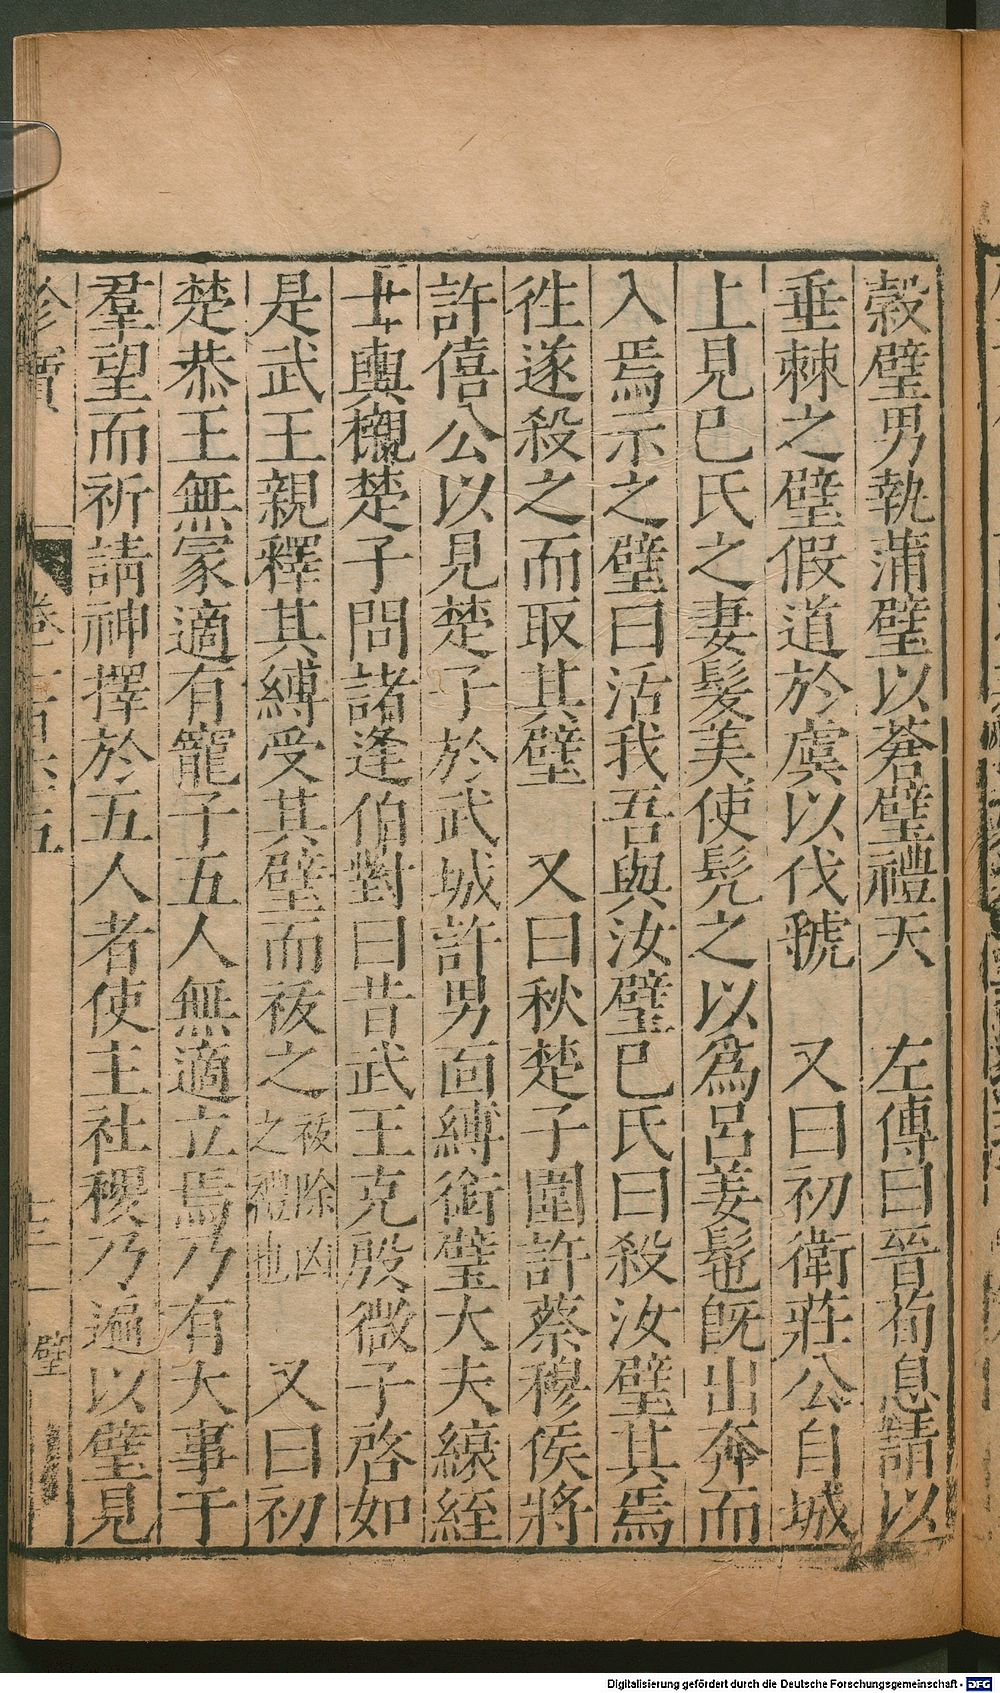 穀璧男執蒲璧以蒼璧禮天　左傳曰晉荀息請以
垂棘之璧假道於虞以伐虢　又曰初衛莊公自城
上見巳氏之妻髮美使髡之以為呂姜髢旣出奔而
入焉示之璧曰活我吾與汝璧巳氏曰殺汝璧其焉
徃遂殺之而取其璧　又曰秋楚子圍許蔡穆侯將
許僖公以見楚子於武城許男面縛銜璧大夫縗絰
士輿櫬楚子問諸逢伯對曰昔武王克殷微子啓如
是武王親釋其縛受其璧而祓之祓除凶之禮也　又曰初
楚恭王無冢適有寵子五人無適立焉乃有大事于
羣望而祈請神擇於五人者使主社稷乃遍以璧見
珍寶
璧
Digitalisierung gefördert durch die Deutsche Forschungsgemeinschaft - DFG